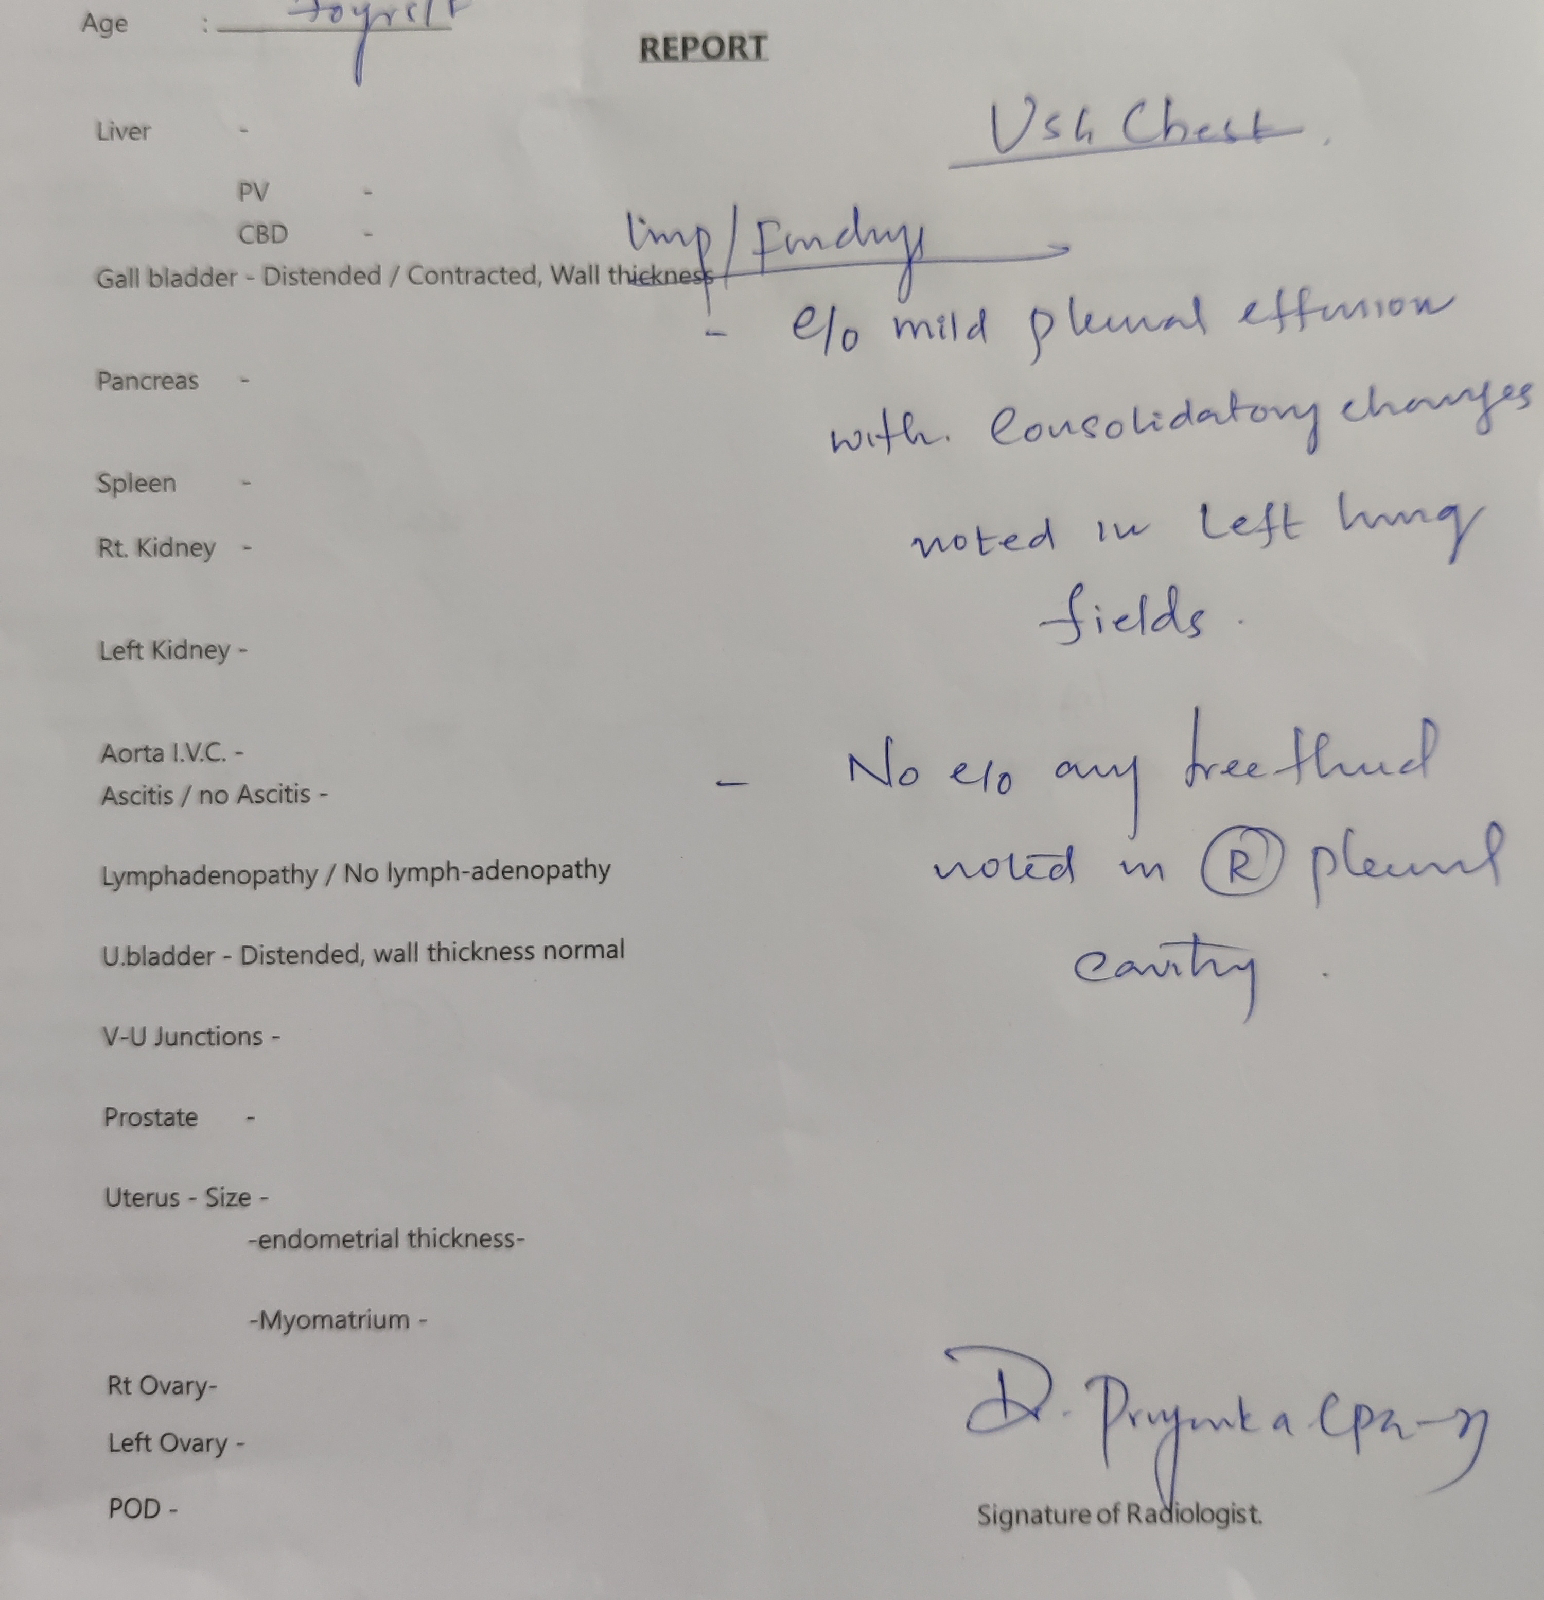 Age :
REPORT
Liver -
USG Chest.
PV -
CBD -
Imp/Findings
Gall bladder - Distended / Contracted, Wall thickness
- e/o mild pleural effusion
Pancreas -
with consolidatory changes
Spleen -
noted in left lung
Rt. Kidney -
fields.
Left Kidney -
Aorta I.V.C. -
Ascitis / no Ascitis -
- No e/o any free fluid
Lymphadenopathy / No lymph-adenopathy
noted in R pleural
U.bladder - Distended, wall thickness normal
cavity.
V-U Junctions -
Prostate -
Uterus - Size -
-endometrial thickness-
-Myomatrium -
Rt Ovary-
Dr. Priyanka
Left Ovary -
POD -
Signature of Radiologist.